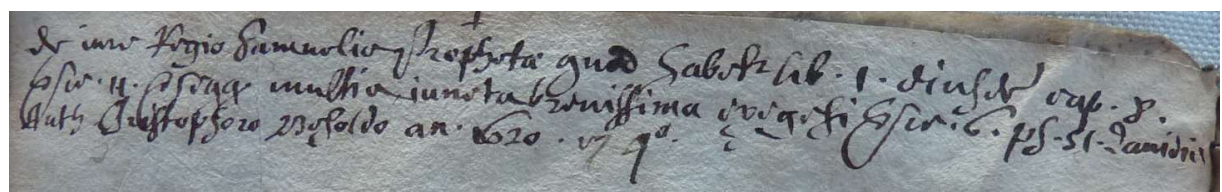 de iure Regio Samuelis Prophetæ quod habetr lib. 1. eiusdē cap. 8.
vsie. 11. et seqq multis iuncta brevissima exegesi vsie. 6. ps. 51. Davidis
Auth Cristophoro Besoldo an. 620. in 4º.